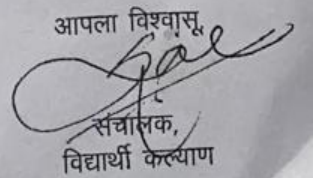 आपला विश्वासू,
संचालक,
विद्यार्थी कल्याण